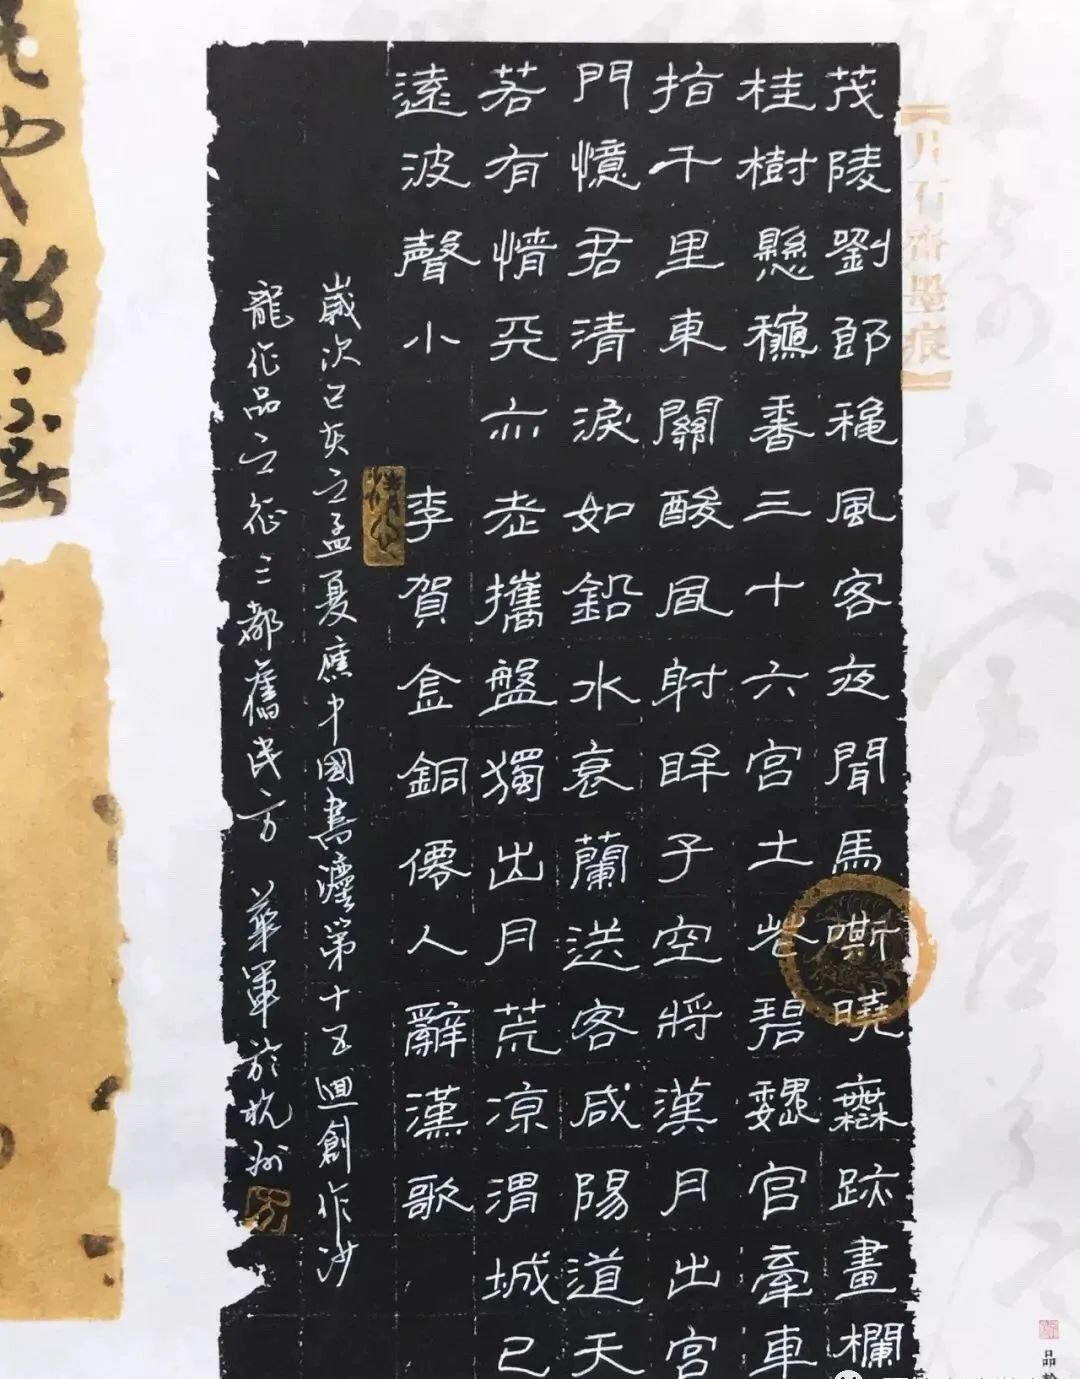 片石齋墨痕
茂陵劉郎穐風客夜聞馬嘶曉橆跡畫欄
桂樹懸穐香三十六宮土花碧魏官牽車
指千里東關酸風射眸子空將漢月出宮
門憶君清淚如鉛水衰蘭送客咸陽道天
若有情天亦老攜盤獨出月荒涼渭城已
遠波聲小 李賀金銅僊人辭漢歌
歲次己亥之孟夏應中國書灋第十五迴創作沙
龍作品之征三都舊民方 華軍於杭州